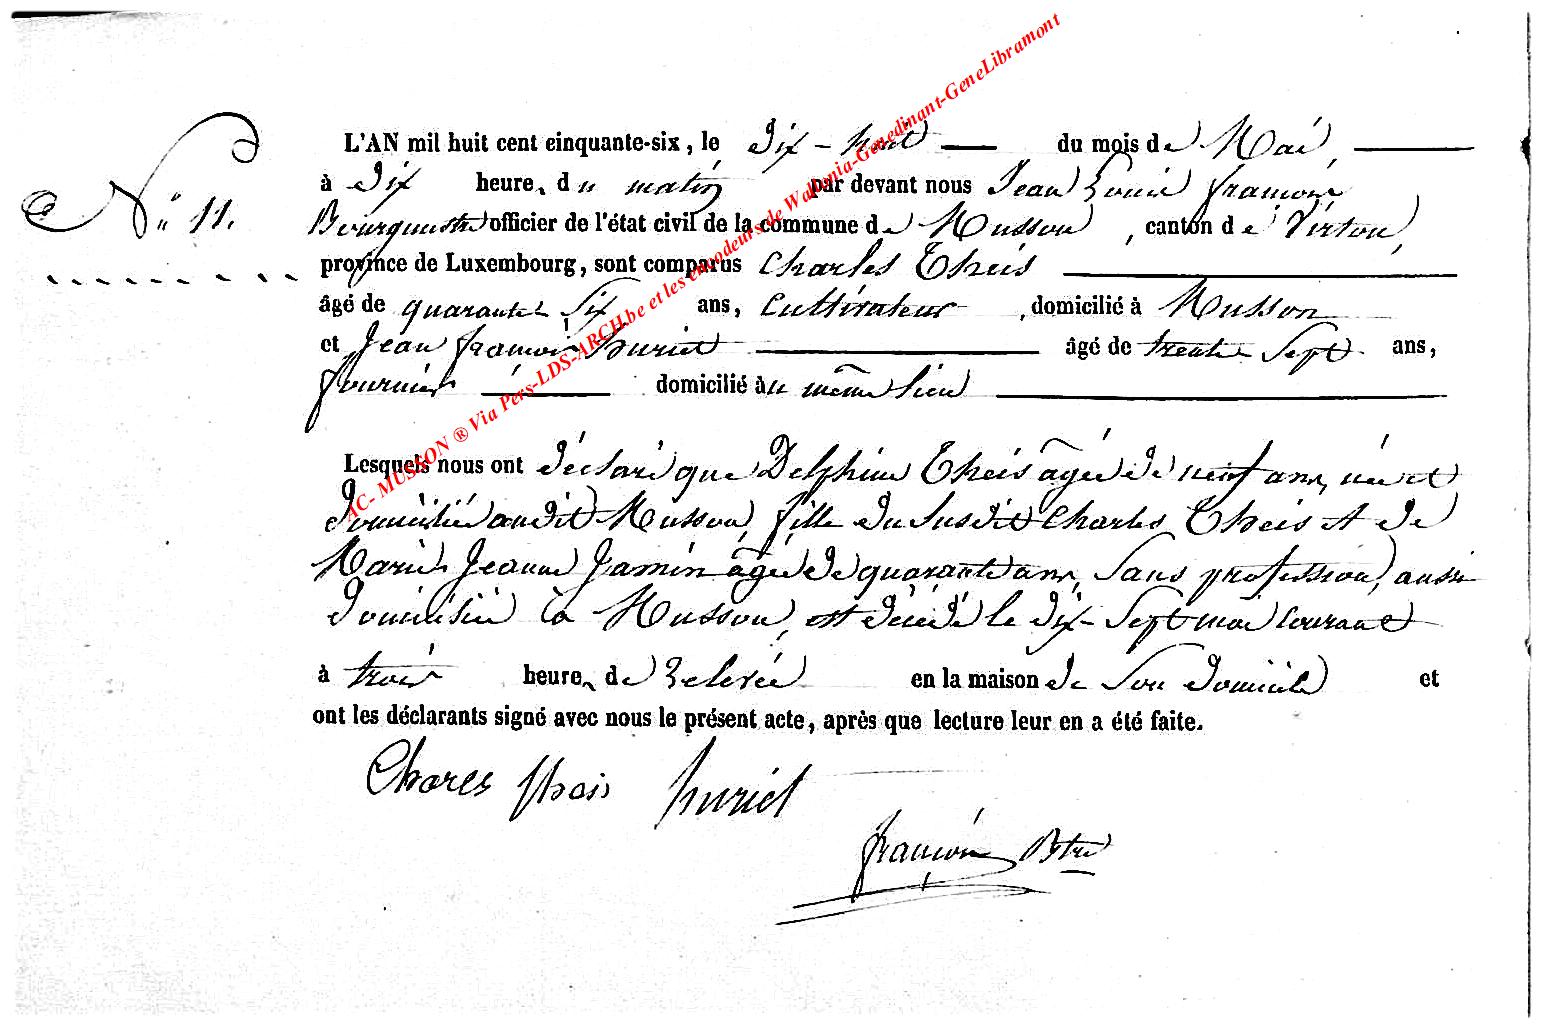 L'AN mil huit cent cinquante-six, le dix-huit du mois de Mai,
à dix heures du matin par devant nous Jean Louis françois
N° 11. Bourgmestre officier de l'état civil de la commune de Musson, canton de Virton,
province de Luxembourg, sont comparus Charles Theis
âgé de quarante six ans, Cultivateur, domicilié à Musson
et Jean françois huriet âgé de trente Sept ans,
fournier domicilié au même lieu
Lesquels nous ont déclaré que Delphine Theis âgée de neuf ans, née et
domiciliée audit Musson, fille du Susdit Charles Theis et de
Marie Jeanne Jamin âgée de quarante ans, Sans profession, aussi
domiciliée à Musson, est décédé le dix-Sept mai Courant
à trois heures de relevée en la maison de Son domicile et
ont les déclarants signé avec nous le présent acte, après que lecture leur en a été faite.
Chares theis huriet
françois Btre
AC- MUSSON ® Via Pers-LDS-ARCH.be et les encodeurs de Wallonia-Genedinant-GeneLibramont